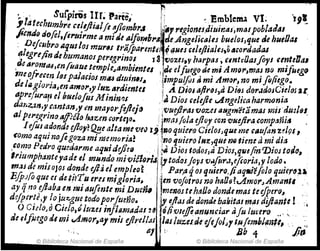 Suspiros III. Parte,
y latechumbre celestial se assombra
siendo dosel, seruirme a mi de alfombra
Descubro aqui los muros trasparentes
alegre fin de humanos peregrinos
de aromas, en suaue temple, ambientes
me ofrecen los palacios mas diuinos,
de la gloria, en amor, y luz ardientes
danzan, y cantan, y en mayor festejo
al peregrino
Jesus adonde estoy? Que assi me veo
como aqui no se goza mi memoria?
como Pedro quedarme aqui desseo
triumphante ya de el mundo mi victoria
mas de mis ojos donde està el empleo?
ay q no està la en mi ausente mi Dueño
desperte, y lo juzgue todo por sueño.
O Cielo, ò Cielo, ò luzes inflamadas
de el fuego de mi Amor, ay mis estrellas
Emblema VI. 195
y regiones diuinas, mas pobladas
de Angelicales buelos, que de huellas
ò aues celestiales, ò acordadas
vozes, y harpas, centellas soys centellas
de el fuego de mi Amor, mas no mi fuego
impulsos à mi Amor, no mi sosiego.
A Dios astros, à Dios dorados Cielos
à Dios celeste Angelica harmonia
vuestras vozes augmentà mas mis duelos
mas sola estoy con vuestra compañia
no quiero Cielos, que me causan zelos,
no quiero luz, que no tiene à mi dia
à Dios todos, à Dios, que sin Dios todo,
y todos soys basura, escoria, y lodo.
Para q os quiero, si aquel solo quiero
en vosotros no hallo? Amor, Amante,
menos te hallo donde mas te espero,
y estas de donde habitas mas distante!
ò si viesse anunciar à su luzero
las luzes de esse sol, y su semblante,
Bb 4 sin